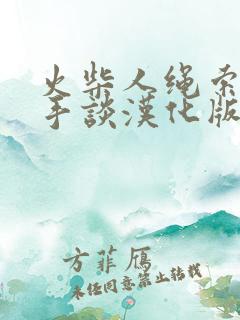 火柴人绳索
手談漢化版
方菲鴈
未经同意禁止转载